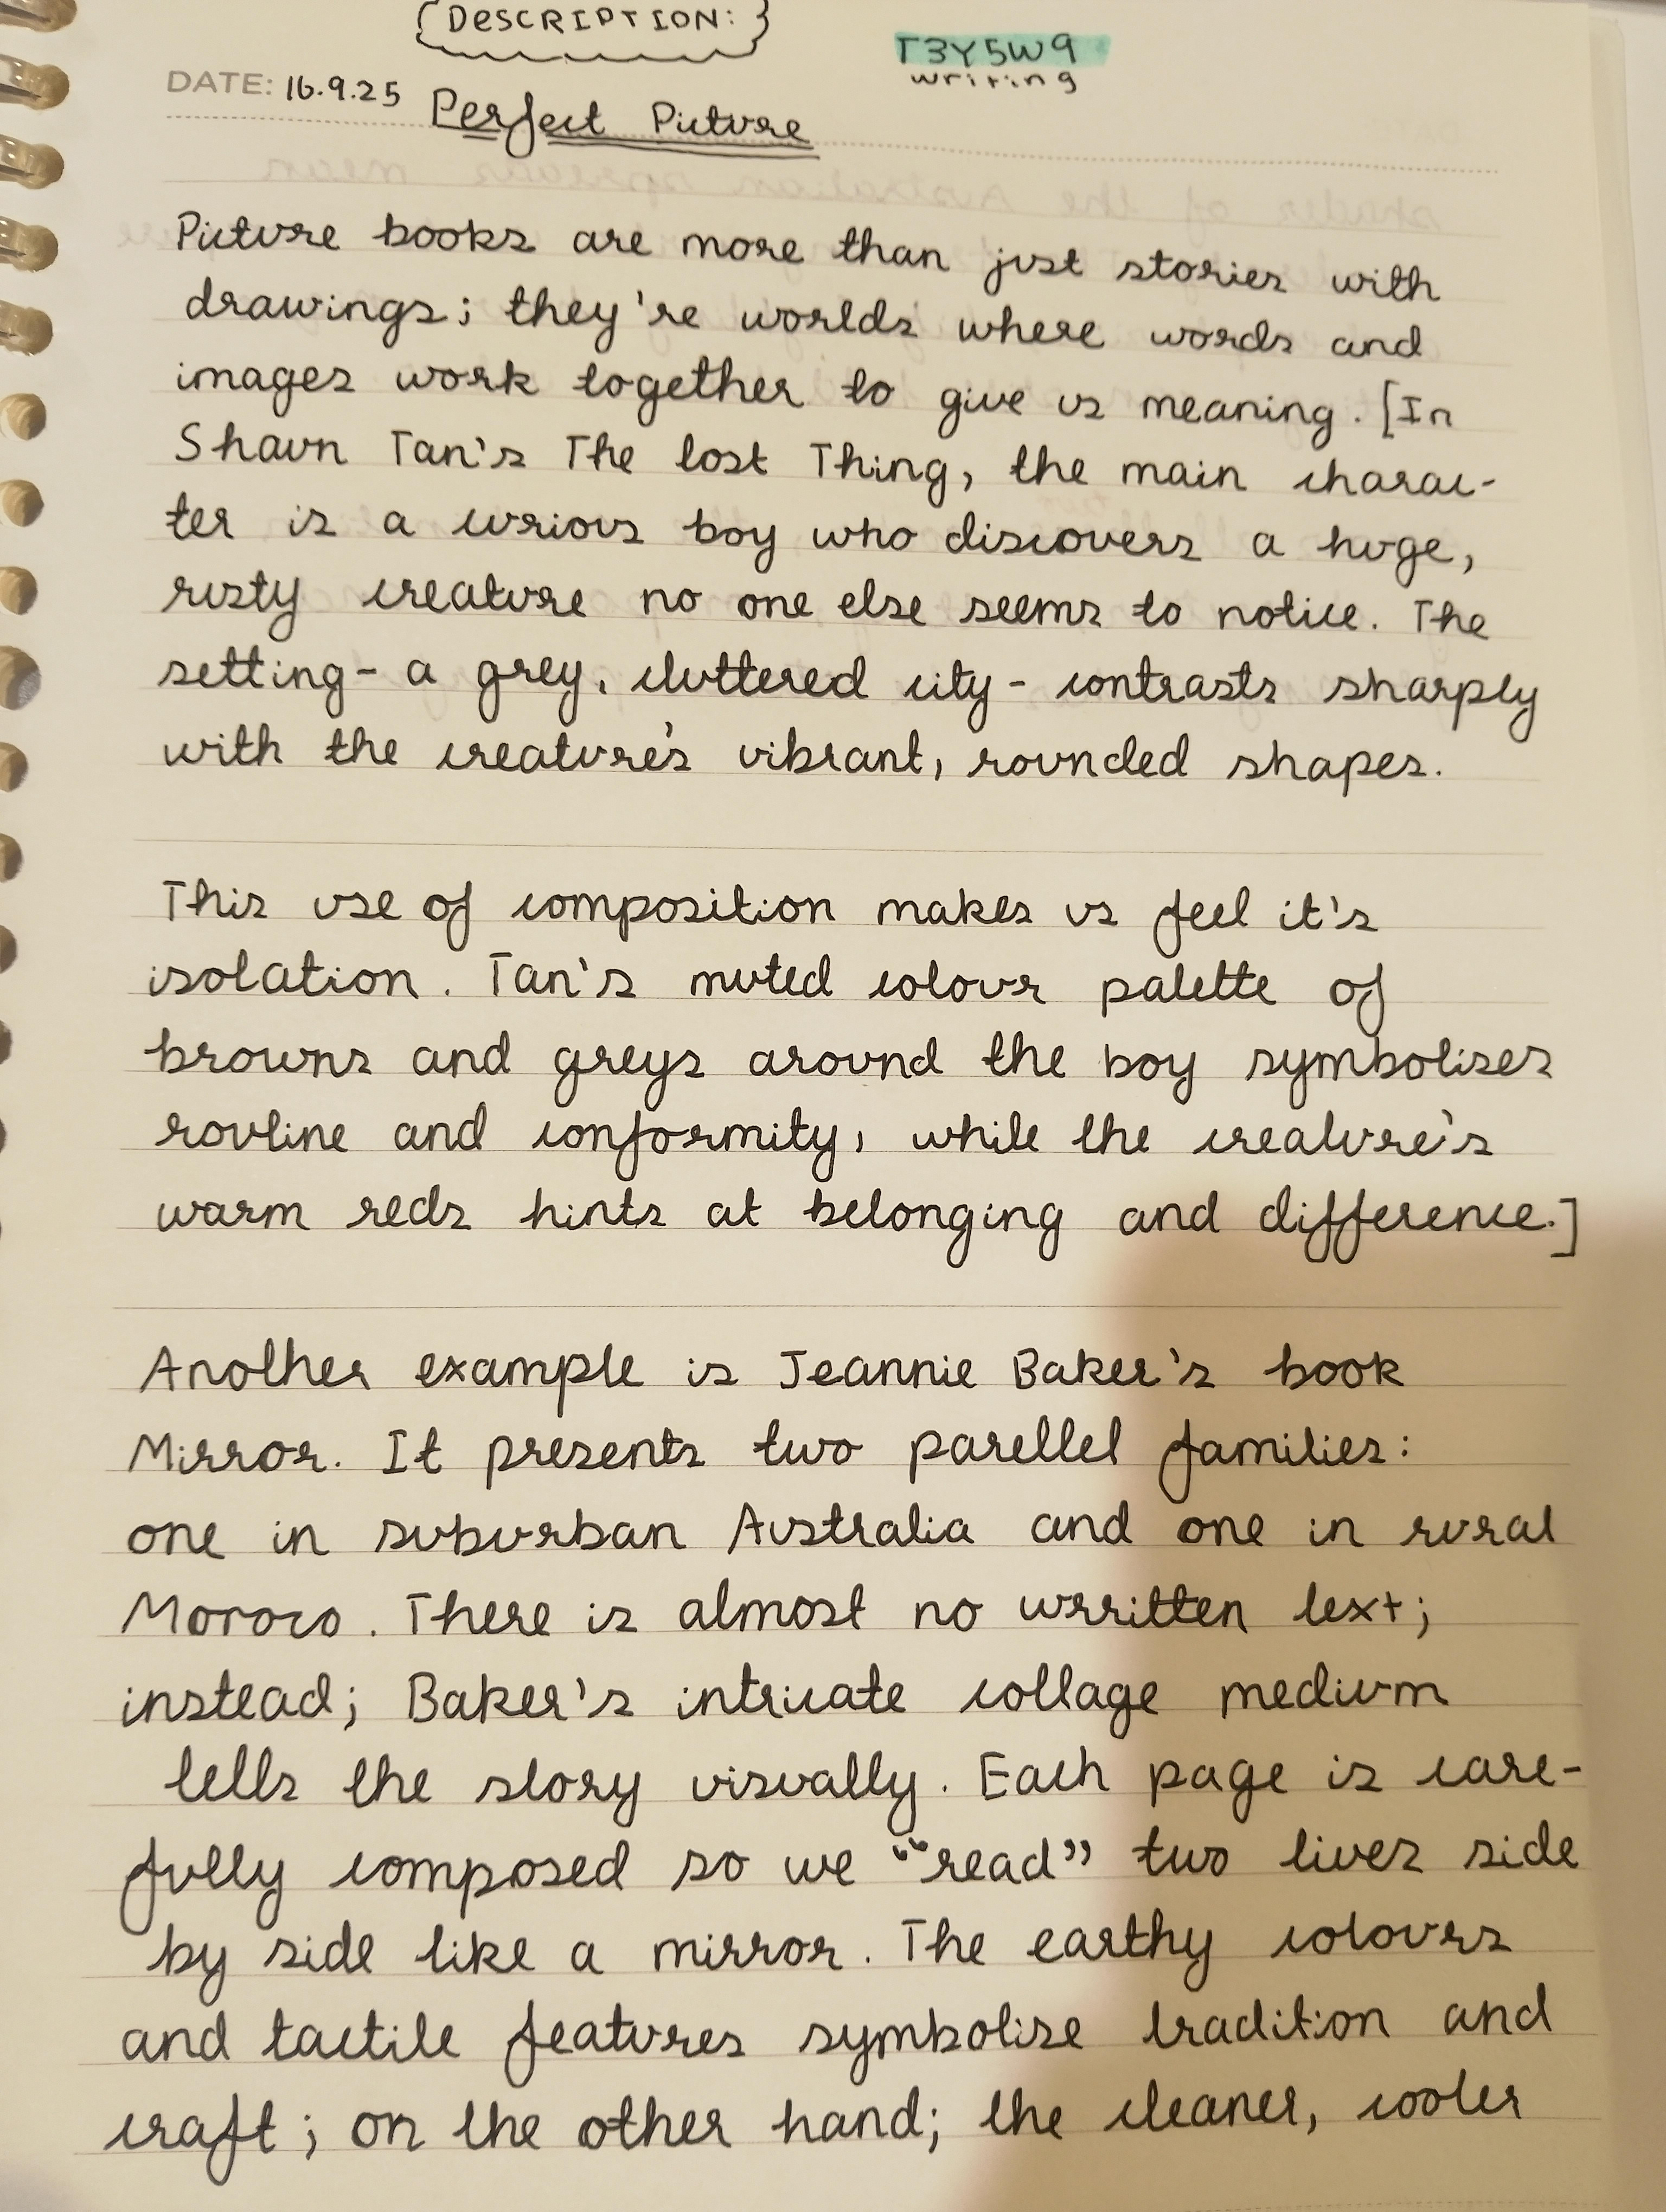 DESCRIPTION:
T3Y5W9
writing
DATE: 16.9.25
Perfect Picture
Picture books are more than just stories with
drawings; they're worlds where words and
images work together to give us meaning. [In
Shaun Tan's The lost Thing, the main charac-
ter is a curious boy who discovers a huge,
rusty creature no one else seems to notice. The
setting- a grey, cluttered city - contrasts sharply
with the creature's vibrant, rounded shapes.
This use of composition makes us feel it's
isolation. Tan's muted colour palette of
browns and greys around the boy symbolises
routine and conformity, while the creature's
warm reds hints at belonging and difference.]
Another example is Jeannie Baker's book
Mirror. It presents two parellel families:
one in suburban Australia and one in rural
Moroco. There is almost no wrritten text;
instead; Baker's intricate collage medium
tells the story visually. Each page is care-
fully composed so we "read" two lives side
by side like a mirror. The earthy colours
and tactile features symbolise tradition and
craft; on the other hand; the cleaner, cooler